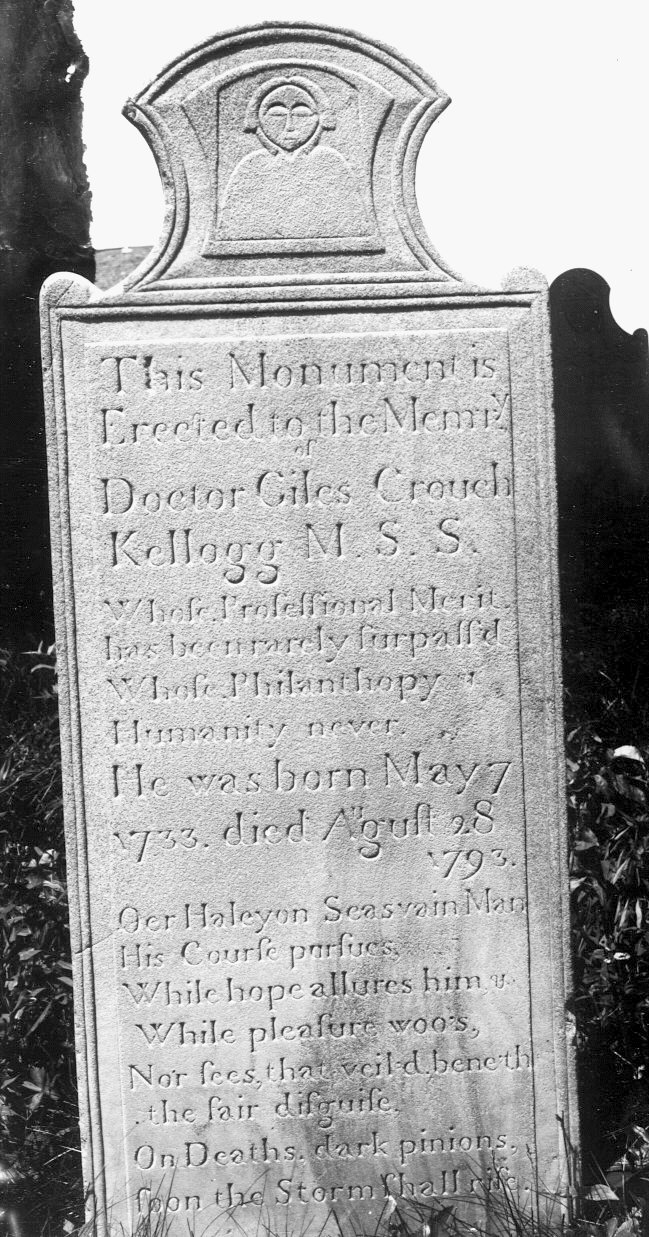 This Monument is
Erected to the Memry
of
Doctor Giles Crouch
Kellogg M. S. S.
Whoſe Profeſſional Merit
has been rarely ſurpaſſ'd
Whoſe Philanthopy &
Humanity never.
He was born May 7
1733. died Auguſt 28
1793.
Oer Halcyon Seas vain Man
His Courſe purſues,
While hope allures him, &
While pleaſure woo's,
Nor ſees, that veil'd beneth
the fair diſguiſe,
On Deaths, dark pinions,
ſoon the Storm ſhall riſe.